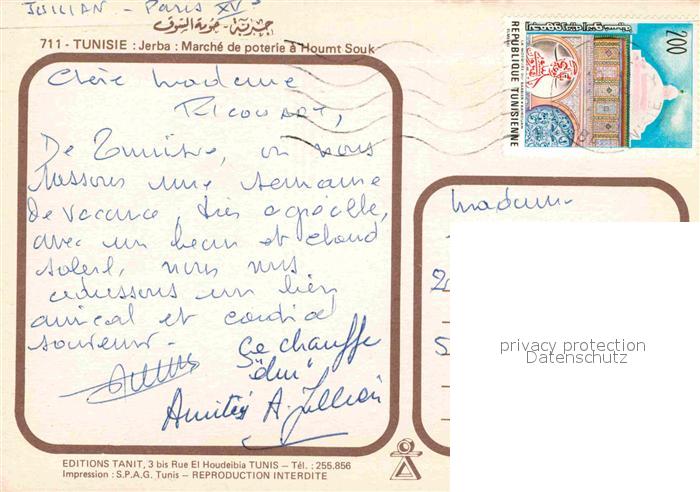 JULLIAN - Paris XVe
جربة - حومة السوق
711 - TUNISIE : Jerba : Marché de poterie à Houmt Souk
200
REPUBLIQUE TUNISIENNE
Chère Madame
RICOUART,
De Tunisie, où nous
passons une semaine
de vacance, très agréable,
avec un beau et chaud
soleil, nous vous
adressons un bien
amical et cordial
souvenir.
Ça chauffe
"dur"
Amitiés A. Jullian
Madame
2
5
privacy protection
Datenschutz
EDITIONS TANIT, 3 bis Rue El Houdeibia TUNIS – Tél. : 255.856
Impression : S.P.A.G. Tunis – REPRODUCTION INTERDITE